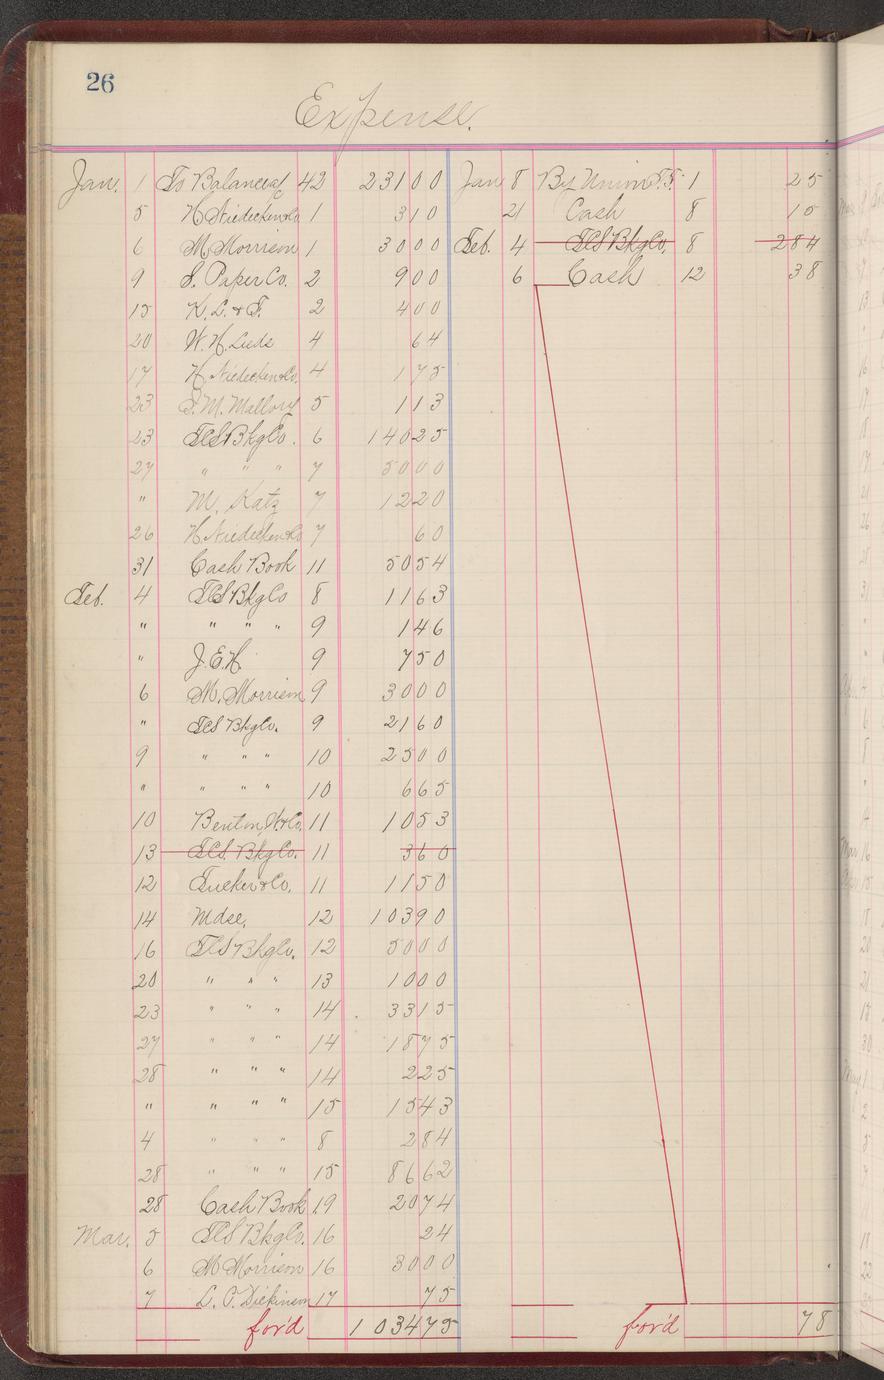 26
Expense.
Jan. 1 To Balance 42 231 00
5 H. Niedecken & Co 1 3 10
6 M. Morrison 1 30 00
9 S. Paper Co. 2 9 00
15 K. L. & T. 2 4 00
20 W. H. 4 64
17 H. Niedecken & Co. 4 1 75
23 M. Mallory 5 1 13
23 Bkg Co. 6 140 25
27 " " " 7 50 00
" M. Katz 7 12 20
26 H. Niedecken & Co 7 60
31 Cash Book 11 50 54
Feb. 4 Bkg Co 8 11 63
" " " " 9 1 46
" J. E. H. 9 7 50
6 M. Morrison 9 30 00
" Bkg Co. 9 21 60
9 " " " 10 25 00
" " " " 10 6 65
10 Benton, W. & Co. 11 10 53
13 Bkg Co. 11 3 60
12 Tucker & Co. 11 11 50
14 Mdse. 12 103 90
16 Bkg Co. 12 50 00
20 " " " 13 10 00
23 " " " 14 33 15
27 " " " 14 18 75
28 " " " 14 2 25
" " " " 15 15 43
4 " " " 8 2 84
28 " " " 15 86 62
28 Cash Book 19 20 74
Mar. 5 Bkg Co. 16 24
6 M Morrison 16 30 00
7 L. C. Dickinson 17 75
for'd 1034 75
Jan 8 By Union 1 25
21 Cash 8 15
Feb. 4 Bkg Co. 8 2 84
6 Cash 12 38
for'd 78